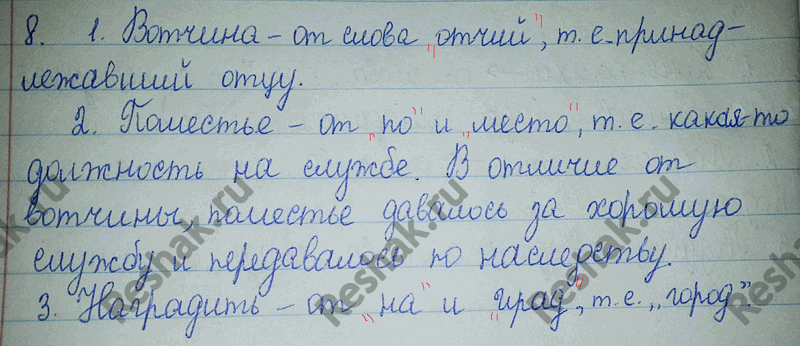 8. 1. Вотчина – от слова „отчий", т. е. принад-
лежавший отцу.
2. Поместье – от „по" и „место", т. е. какая-то
должность на службе. В отличие от
вотчины, поместье давалось за хорошую
службу и передавалось по наследству.
3. Наградить – от „на" и „град", т. е. „город".
Reshak.ru
Reshak.ru
Reshak.ru
Reshak.ru